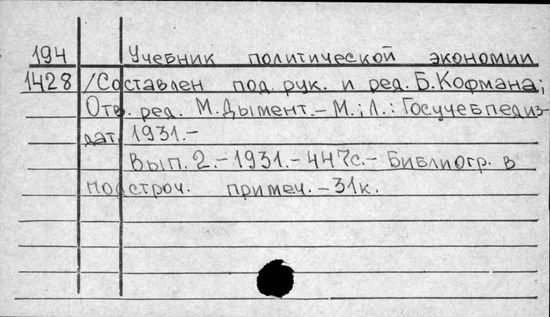 194 Учебник политической экономии
1428 /Составлен под рук. и ред. Б. Кофмана;
Отв. ред. М. Дымент. – М.; Л.: Госучебпедиз-
дат, 1931. –
Вып. 2. – 1931. – 447с. – Библиогр. в
подстроч. примеч. – 31к.